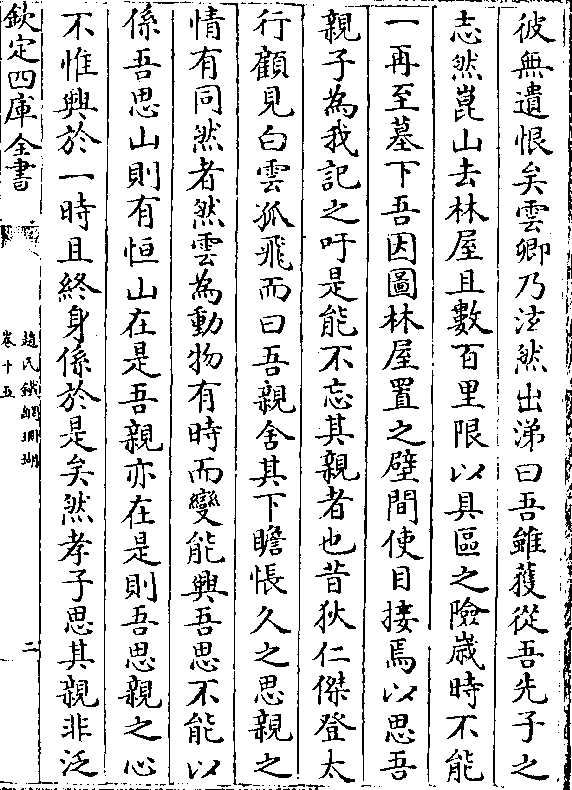 彼無遺恨矣雲卿乃泫然出涕曰吾雖獲從吾先子之
志然崑山去林屋且數百里限以具區之險歲時不能
一再至墓下吾因圖林屋置之壁間使目接焉以思吾
親子為我記之吁是能不忘其親者也昔狄仁傑登太
行顧見白雲孤飛而曰吾親舍其下瞻悵久之思親之
情有同然者然雲為動物有時而變能興吾思不能以
係吾思山則有恒山在是吾親亦在是則吾思親之心
不惟興於一時且終身係於是矣然孝子思其親非泛
欽定四庫全書
趙氏鐵網珊瑚
卷十五
二